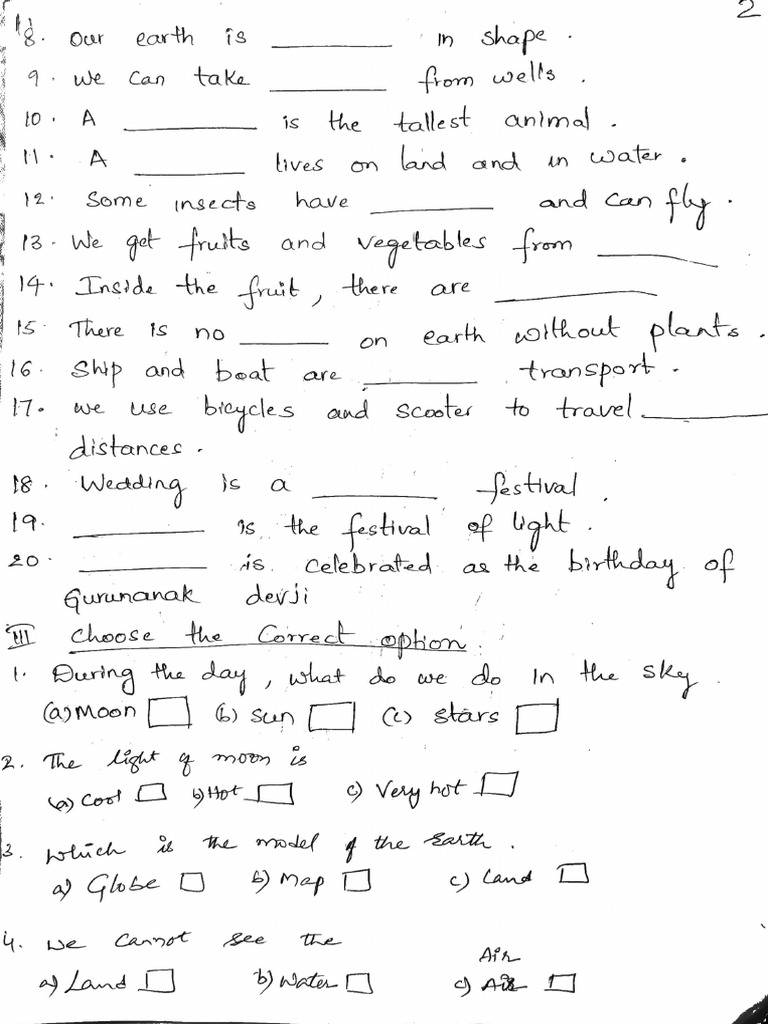 2
8. Our earth is ________ in shape.
9. We can take ________ from wells.
10. A ________ is the tallest animal.
11. A ________ lives on land and in water.
12. Some insects have ________ and can fly.
13. We get fruits and vegetables from ________
14. Inside the fruit, there are ________
15. There is no ________ on earth without plants.
16. Ship and boat are ________ transport.
17. We use bicycles and scooter to travel ________
distances.
18. Wedding is a ________ festival.
19. ________ is the festival of light.
20. ________ is celebrated as the birthday of
Gurunanak devji
III Choose the Correct option.
1. During the day, what do we do in the sky.
(a) Moon (b) Sun (c) Stars
2. The light of moon is
(a) Cool b) Hot c) Very hot
3. Which is the model of the Earth.
a) Globe b) Map c) Land
4. We cannot see the
Air
a) Land b) Water c) Air